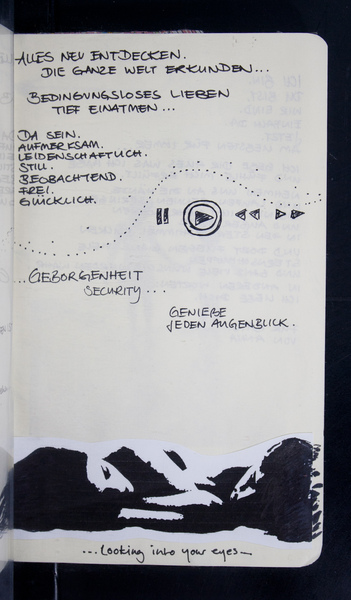 ALLES NEU ENTDECKEN.
DIE GANZE WELT ERKUNDEN...
BEDINGUNGSLOSES LIEBEN
TIEF EINATMEN...
DA SEIN.
AUFMERKSAM.
LEIDENSCHAFTLICH.
STILL.
BEOBACHTEND.
FREI.
GLÜCKLICH.
...GEBORGENHEIT
SECURITY...
GENIEßE
JEDEN AUGENBLICK.
...looking into your eyes